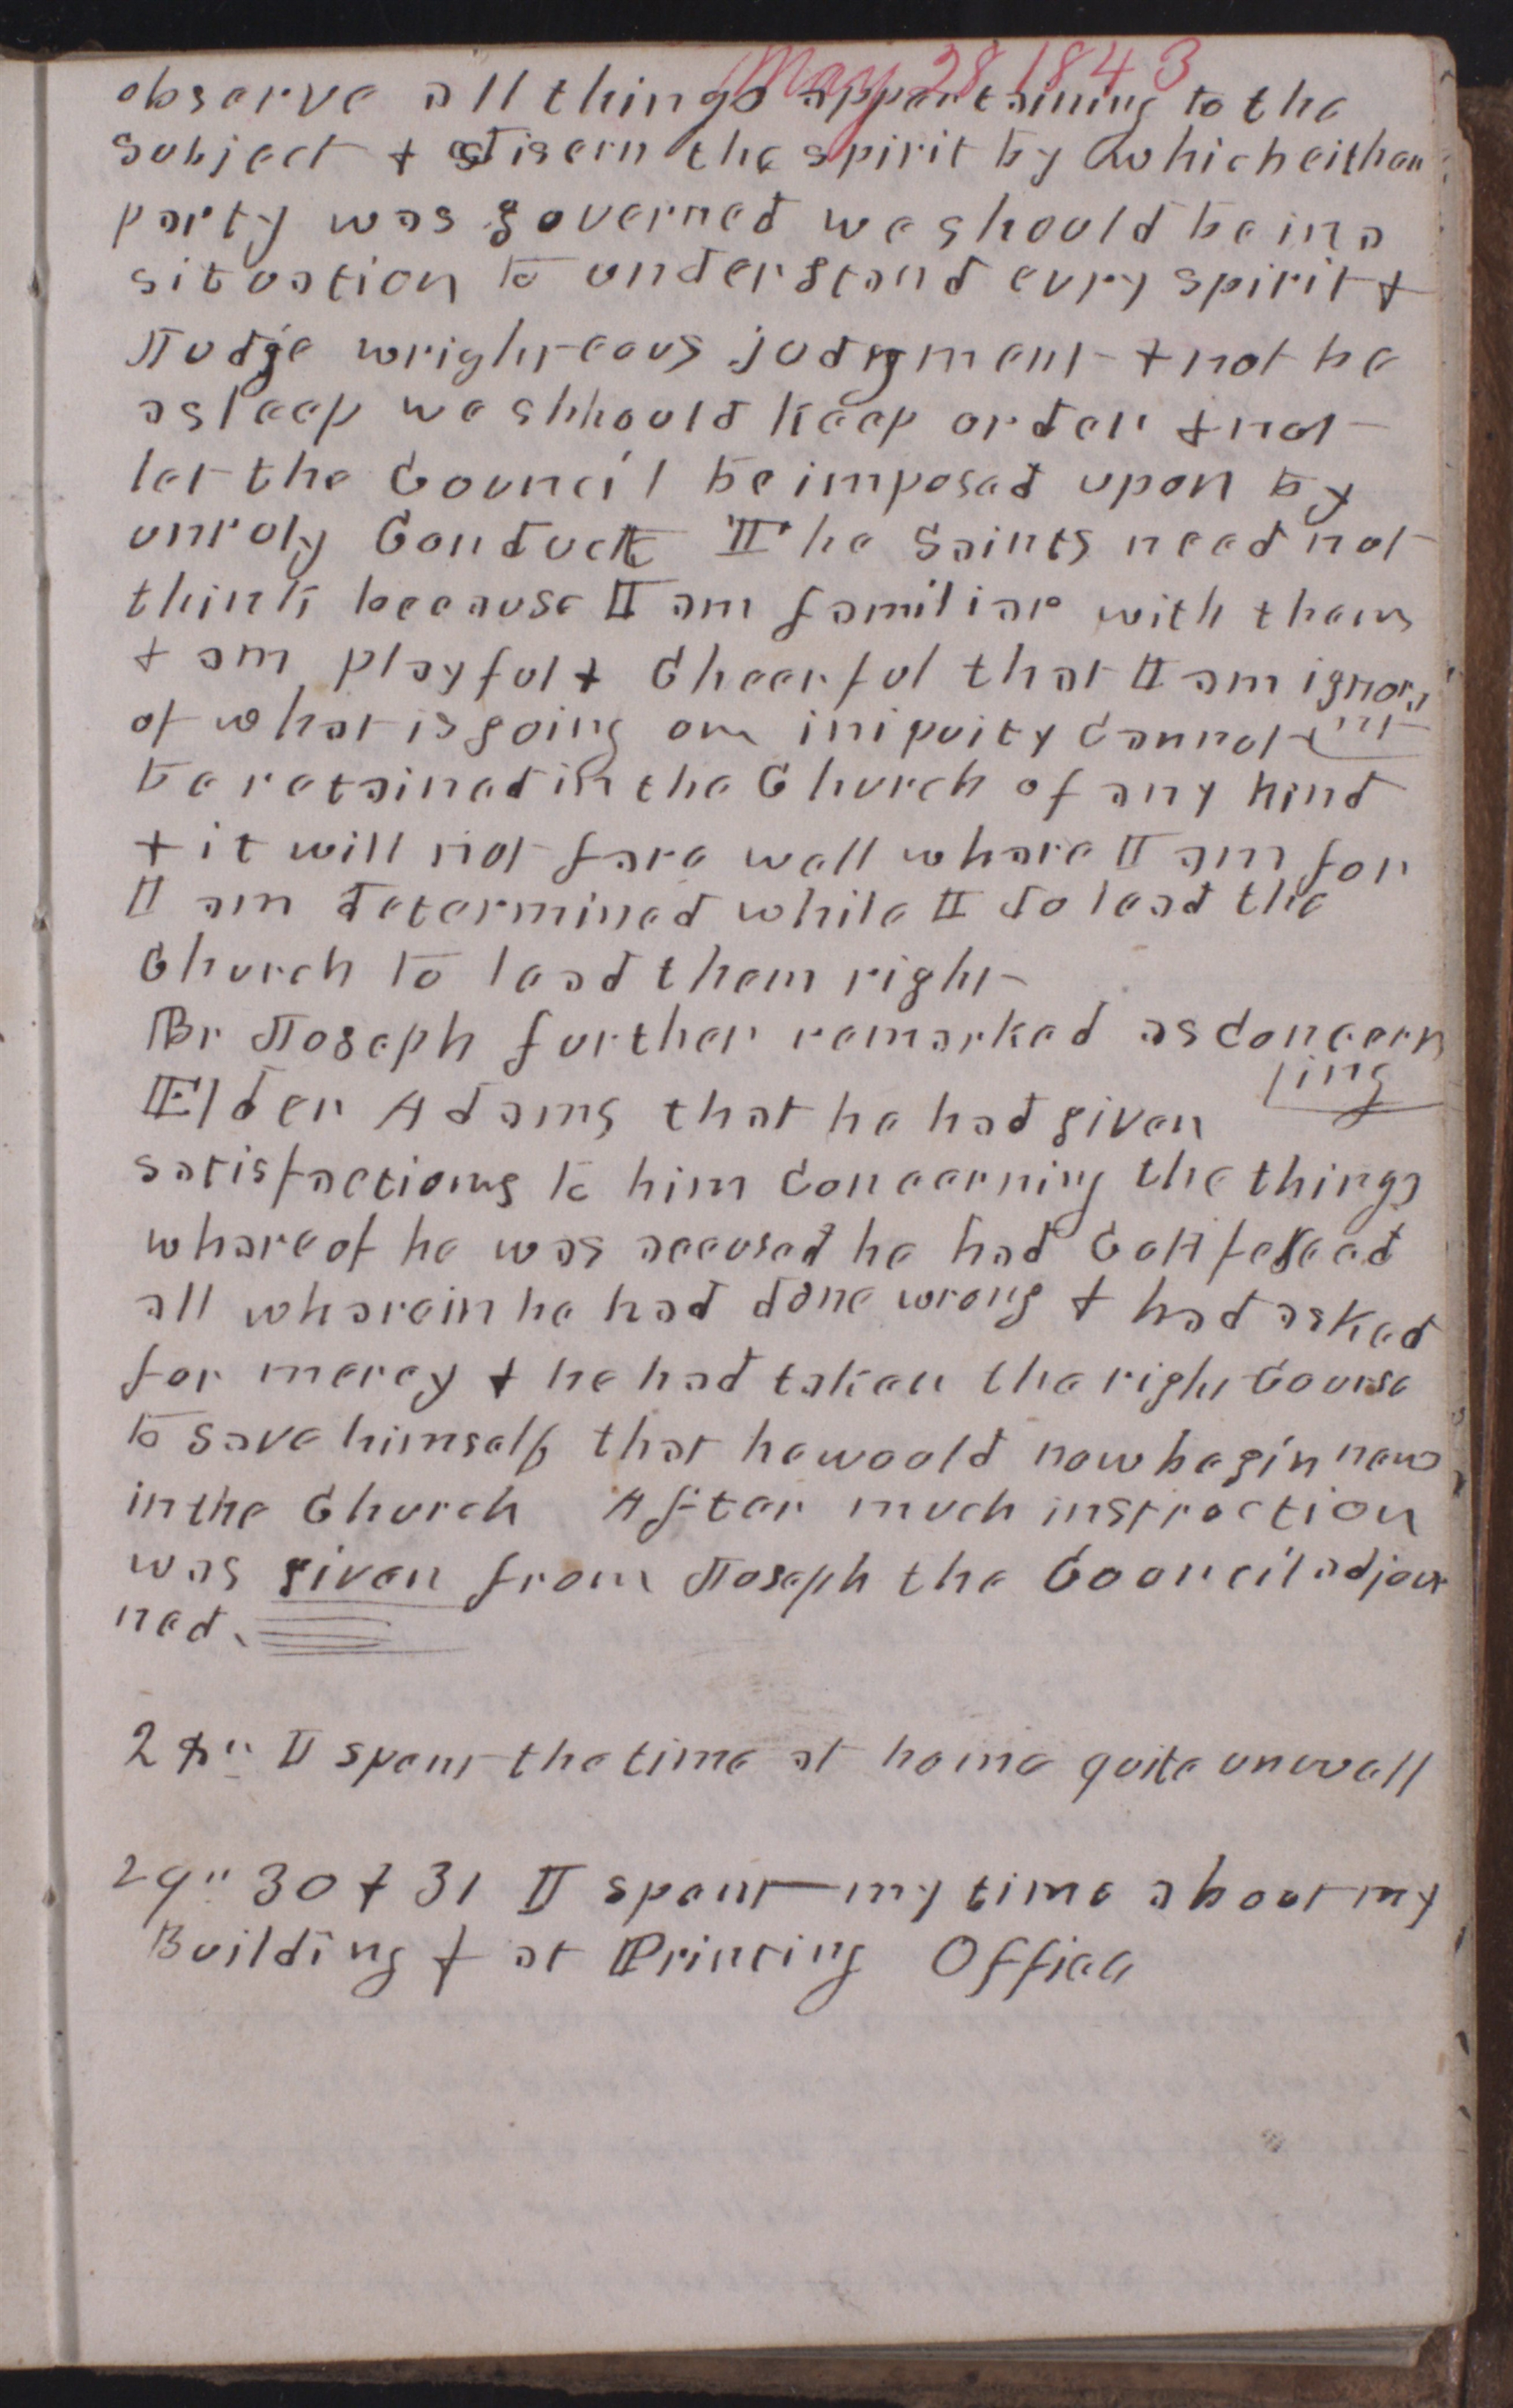 May 28 1843
observe all things appertaining to the
subject & disern the spirit by which either
party was governed we should be in a
situation to understand evry spirit &
Judge wrighteous judgment & not be
asleep we shhould keep order & not
let the Council be imposed upon by
unruly Conduct The Saints need not
think because I am familiar with them
& am playful & Cheerful that I am ignora
of what is going on iniquity Cannot nt
be retained in the Church of any kind
& it will not fare well whare I am for
I am determined while I do lead the
Church to lead them right
Br Joseph further remarked as Concern
ing
Elder Adams that he had given
satisfactions to him Concerning the things
whareof he was accused he had Confessed
all wharein he had done wrong & had asked
for mercy & he had taken the right Course
to save himself that he would now begin new
in the Church After much instruction
was given from Joseph the Council adjour
ned.
28" I spent the time at home quite unwell
29" 30 & 31 I spent my time about my
Building & at Printing Office